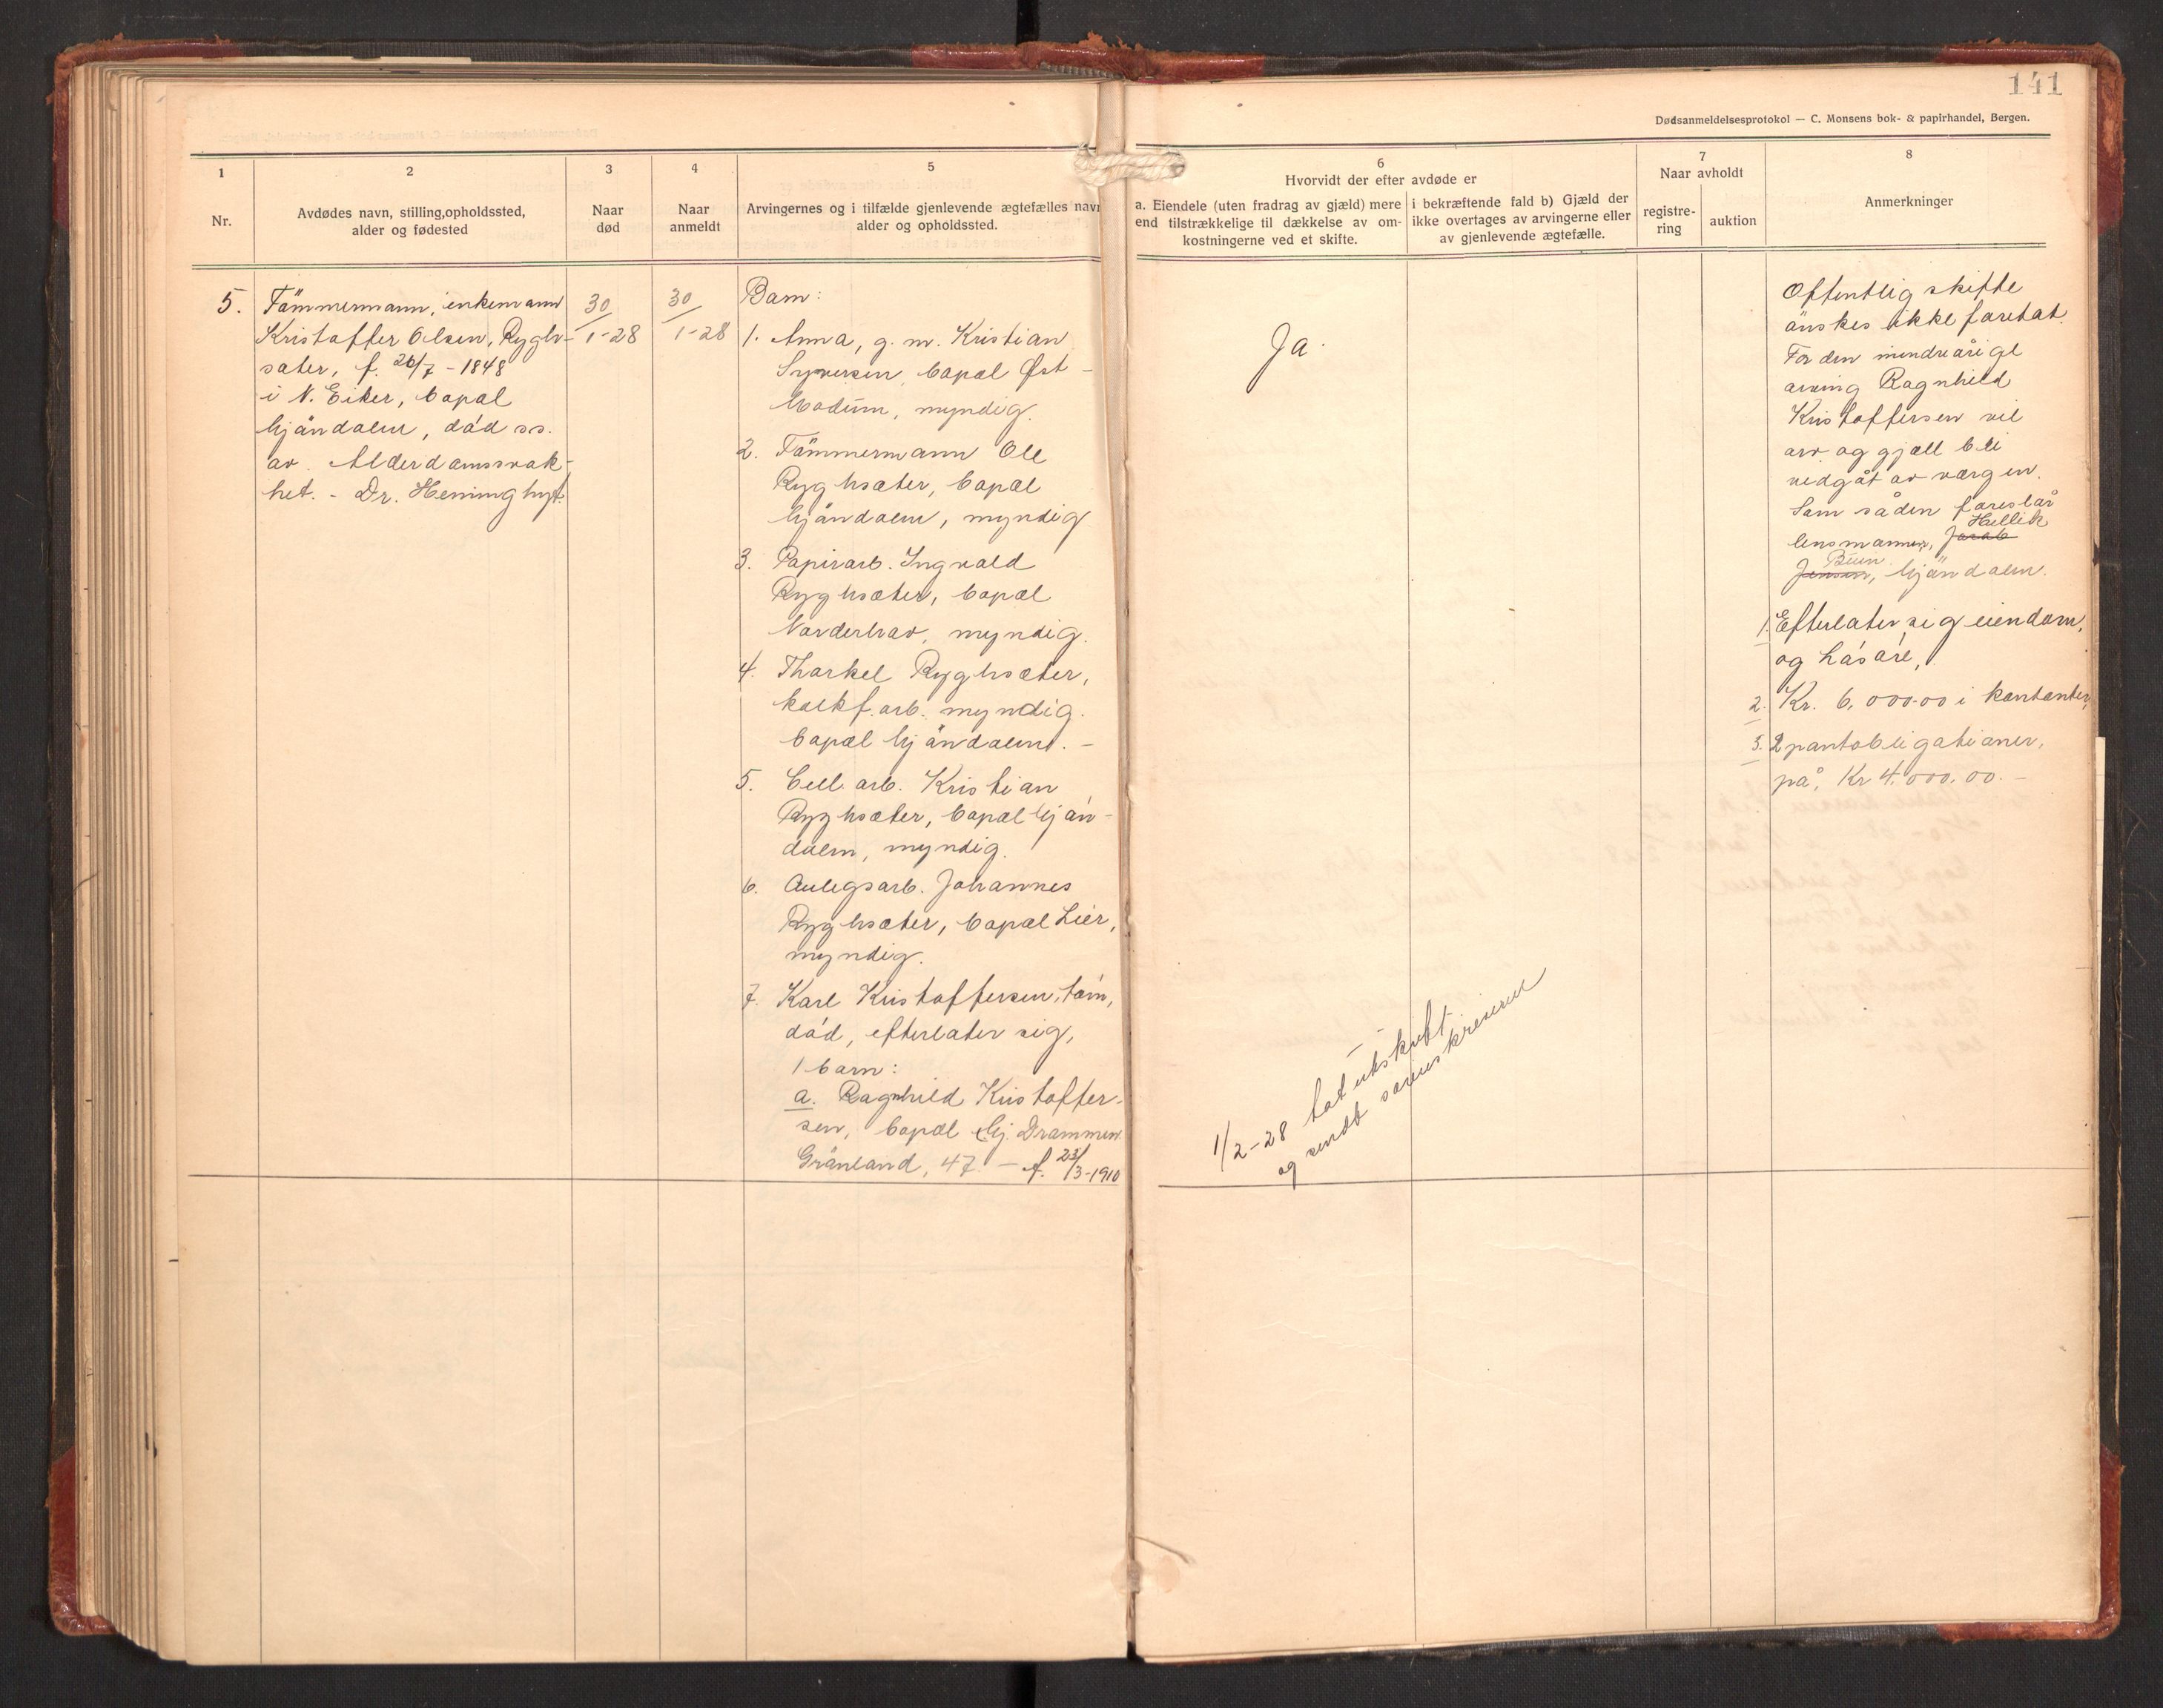 141
Dødsanmeldelsesprotokol — C. Monsens bok- & papirhandel, Bergen.
1
Nr.
2
Avdødes navn, stilling, opholdssted,
alder og fødested
3
Naar
død
4
Naar
anmeldt
5
Arvingernes og i tilfælde gjenlevende ægtefælles navn
alder og opholdssted.
6
Hvorvidt der efter avdøde er
a. Eiendele (uten fradrag av gjæld) mere
end tilstrækkelige til dækkelse av om-
kostningerne ved et skifte.
i bekræftende fald b) Gjæld der
ikke overtages av arvingerne eller
av gjenlevende ægtefælle.
7
Naar avholdt
registre-
ring
auktion
8
Anmerkninger
5.
Tömmermann, enkemann
Kristoffer Olsen, Rygh-
sæter, f. 26/7 - 1848
i N. Eiker, bopæl
Mjöndalen, död ss.
av. Alderdomssvak-
het. - Dr.
30/1-28
30/1-28
Barn:
1. Anna, g. m. Kristian
Syversen, bopæl Øst-
Modum, myndig.
2. Tömmermann Ole
Ryghsæter, bopæl
Mjöndalen, myndig
3. Papirarb. Ingvald
Ryghsæter, bopæl
Norderhov, myndig.
4. Thorkel Ryghsæter,
kalkf. arb. myndig.
bopæl Mjöndalen. -
5. Cell arb. Kristian
Ryghsæter, bopæl Mjön-
dalen, myndig.
6. Anlegsarb. Johannes
Ryghsæter, bopæl Lier,
myndig.
7. Karl Kristoffersen, töm,
död, efterlater sig,
1 barn:
a. Ragnhild Kristoffer-
sen, bopæl Mj. Drammen
Grönland, 47. - f. 23/3-1910
Ja.
1/2-28 tat utskrift
og sendt sorenskriveren
Offentlig skifte
önskes ikke foretat.
For den mindreårige
arving Ragnhild
Kristoffersen vil
arv og gjæll bli
vedgåt av værgen.
Som sådan foreslår
Hellik
lensmannen, Jacob
Büen
Jensen, Mjöndalen.
1. Efterlater sig eiendom,
og lösöre,
2. Kr. 6,000.00 i kontanter,
3. 2 pantobligationer,
på, Kr 4.000.00. -